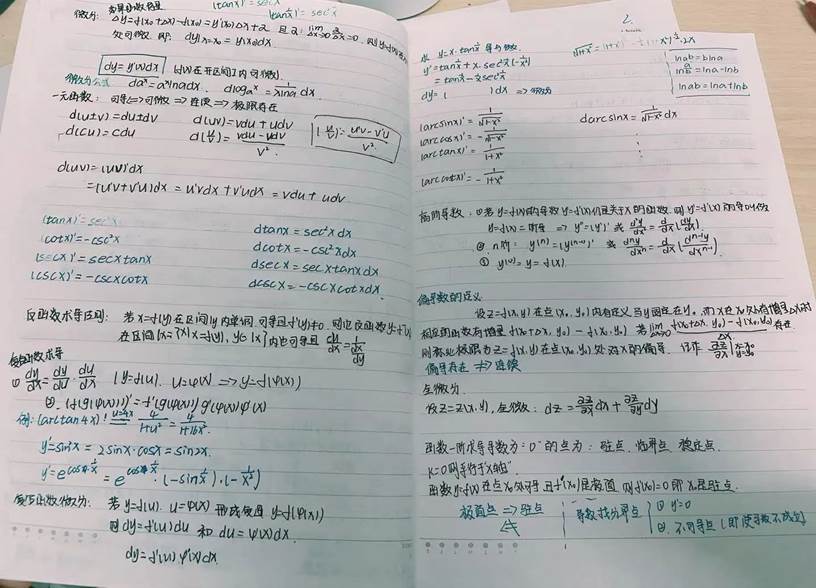 (tanx)' = sec²x
微分: 若函数增量
Δy = f(x₀+Δx) - f(x₀) = y'(x₀)Δx + α 且 α: lim Δx→0 α/Δx = 0. 则 y=f(x)在
处可微 即: dy|x=x₀ = y'(x₀)dx
dy = y'(x)dx (f(x)在开区间I内可微)
微分公式 da^x = a^x lna dx. dlogₐx = 1/(xlna) dx.
一元函数: 可导⇔可微 ⇒ 连续 ⇒ 极限存在
d(u±v) = du±dv d(uv) = vdu + udv
d(cu) = cdu d(u/v) = (vdu - udv)/v². (u/v)' = (u'v - v'u)/v²
d(uv) = (uv)'dx
= (u'v + v'u)dx = u'vdx + v'udx = vdu + udv
(tanx)' = sec²x dtanx = sec²xdx
(cotx)' = -csc²x dcotx = -csc²xdx
(secx)' = secxtanx dsecx = secxtanxdx
(cscx)' = -cscxcotx dcscx = -cscxcotxdx.
反函数求导法则: 若x=f(y)在区间Iy内单调,可导且f'(y)≠0. 则它反函数y=f⁻¹(x)
在区间Ix={x|x=f(y), y∈Iy}内也可导且 dy/dx = 1/(dx/dy)
复合函数求导
① dy/dx = dy/du · du/dx (y=f(u). u=φ(x) ⇒ y=f(φ(x)))
②. (f(g(φ(x))))' = f'(g(φ(x))) g'(φ(x)) φ'(x)
例: (arctan4x)' u=4x 4/(1+u²) = 4/(1+16x²).
y' = sin²x = 2sinx·cosx = sin2x.
y' = e^cos1/x = e^cos1/x · (-sin1/x)·(-1/x²)
复合函数微分: 若 y=f(u). u=φ(x) 形成复合 y=f(φ(x))
则 dy=f'(u)du 和 du=φ'(x)dx.
dy=f'(u)·φ'(x)dx.
2.
求 y=x·tan1/x 导与微.
y' = tan1/x + x·sec²1/x(-1/x²)
= tan1/x - 1/x sec²1/x
dy = ( )dx ⇒ 微分
lna^b = blna
ln a/b = lna - lnb
lnab = lna + lnb
(arcsinx)' = 1/√(1-x²) darcsinx = 1/√(1-x²) dx
(arccosx)' = -1/√(1-x²)
(arctanx)' = 1/(1+x²)
(arccotx)' = -1/(1+x²)
高阶导数: ①若y=f(x)的导数y'=f'(x)仍是关于x的函数. 则y'=f'(x)的导叫做
y=f(x)二阶导 ⇒ y''=(y')' 或 d²y/dx² = d/dx(dy/dx).
②. n阶: y⁽ⁿ⁾ = (y⁽ⁿ⁻¹⁾)' 或 dⁿy/dxⁿ = d/dx(dⁿ⁻¹y/dxⁿ⁻¹)
③ y⁽⁰⁾ = y = f(x).
偏导数的定义
设z=f(x,y)在点(x₀,y₀)内有定义当y固定在y₀. 而x在x₀处有增量Δx时
相应的函数有增量 f(x₀+Δx, y₀) - f(x₀, y₀) 若 lim Δx→0 (f(x₀+Δx, y₀) - f(x₀, y₀))/Δx 存在
则称此极限为z=f(x,y)在点(x₀,y₀)处对x的偏导. 记作 ∂z/∂x | x=x₀ y=y₀
偏导存在 ⇏ 连续
全微分.
设z=z(x,y), 全微分: dz = ∂z/∂x dx + ∂z/∂y dy
函数一阶求导导数为"0"的点为: 驻点. 临界点 稳定点.
k=0则平行于"x轴"
函数y=f(x)在点x₀处可导 且f(x₀)是极值 则f'(x₀)=0 即x₀是驻点.
极值点 ⇒ 驻点 导数找分界点 ① y'=0
⇍ ②. 不可导点 (即使导数不成立)